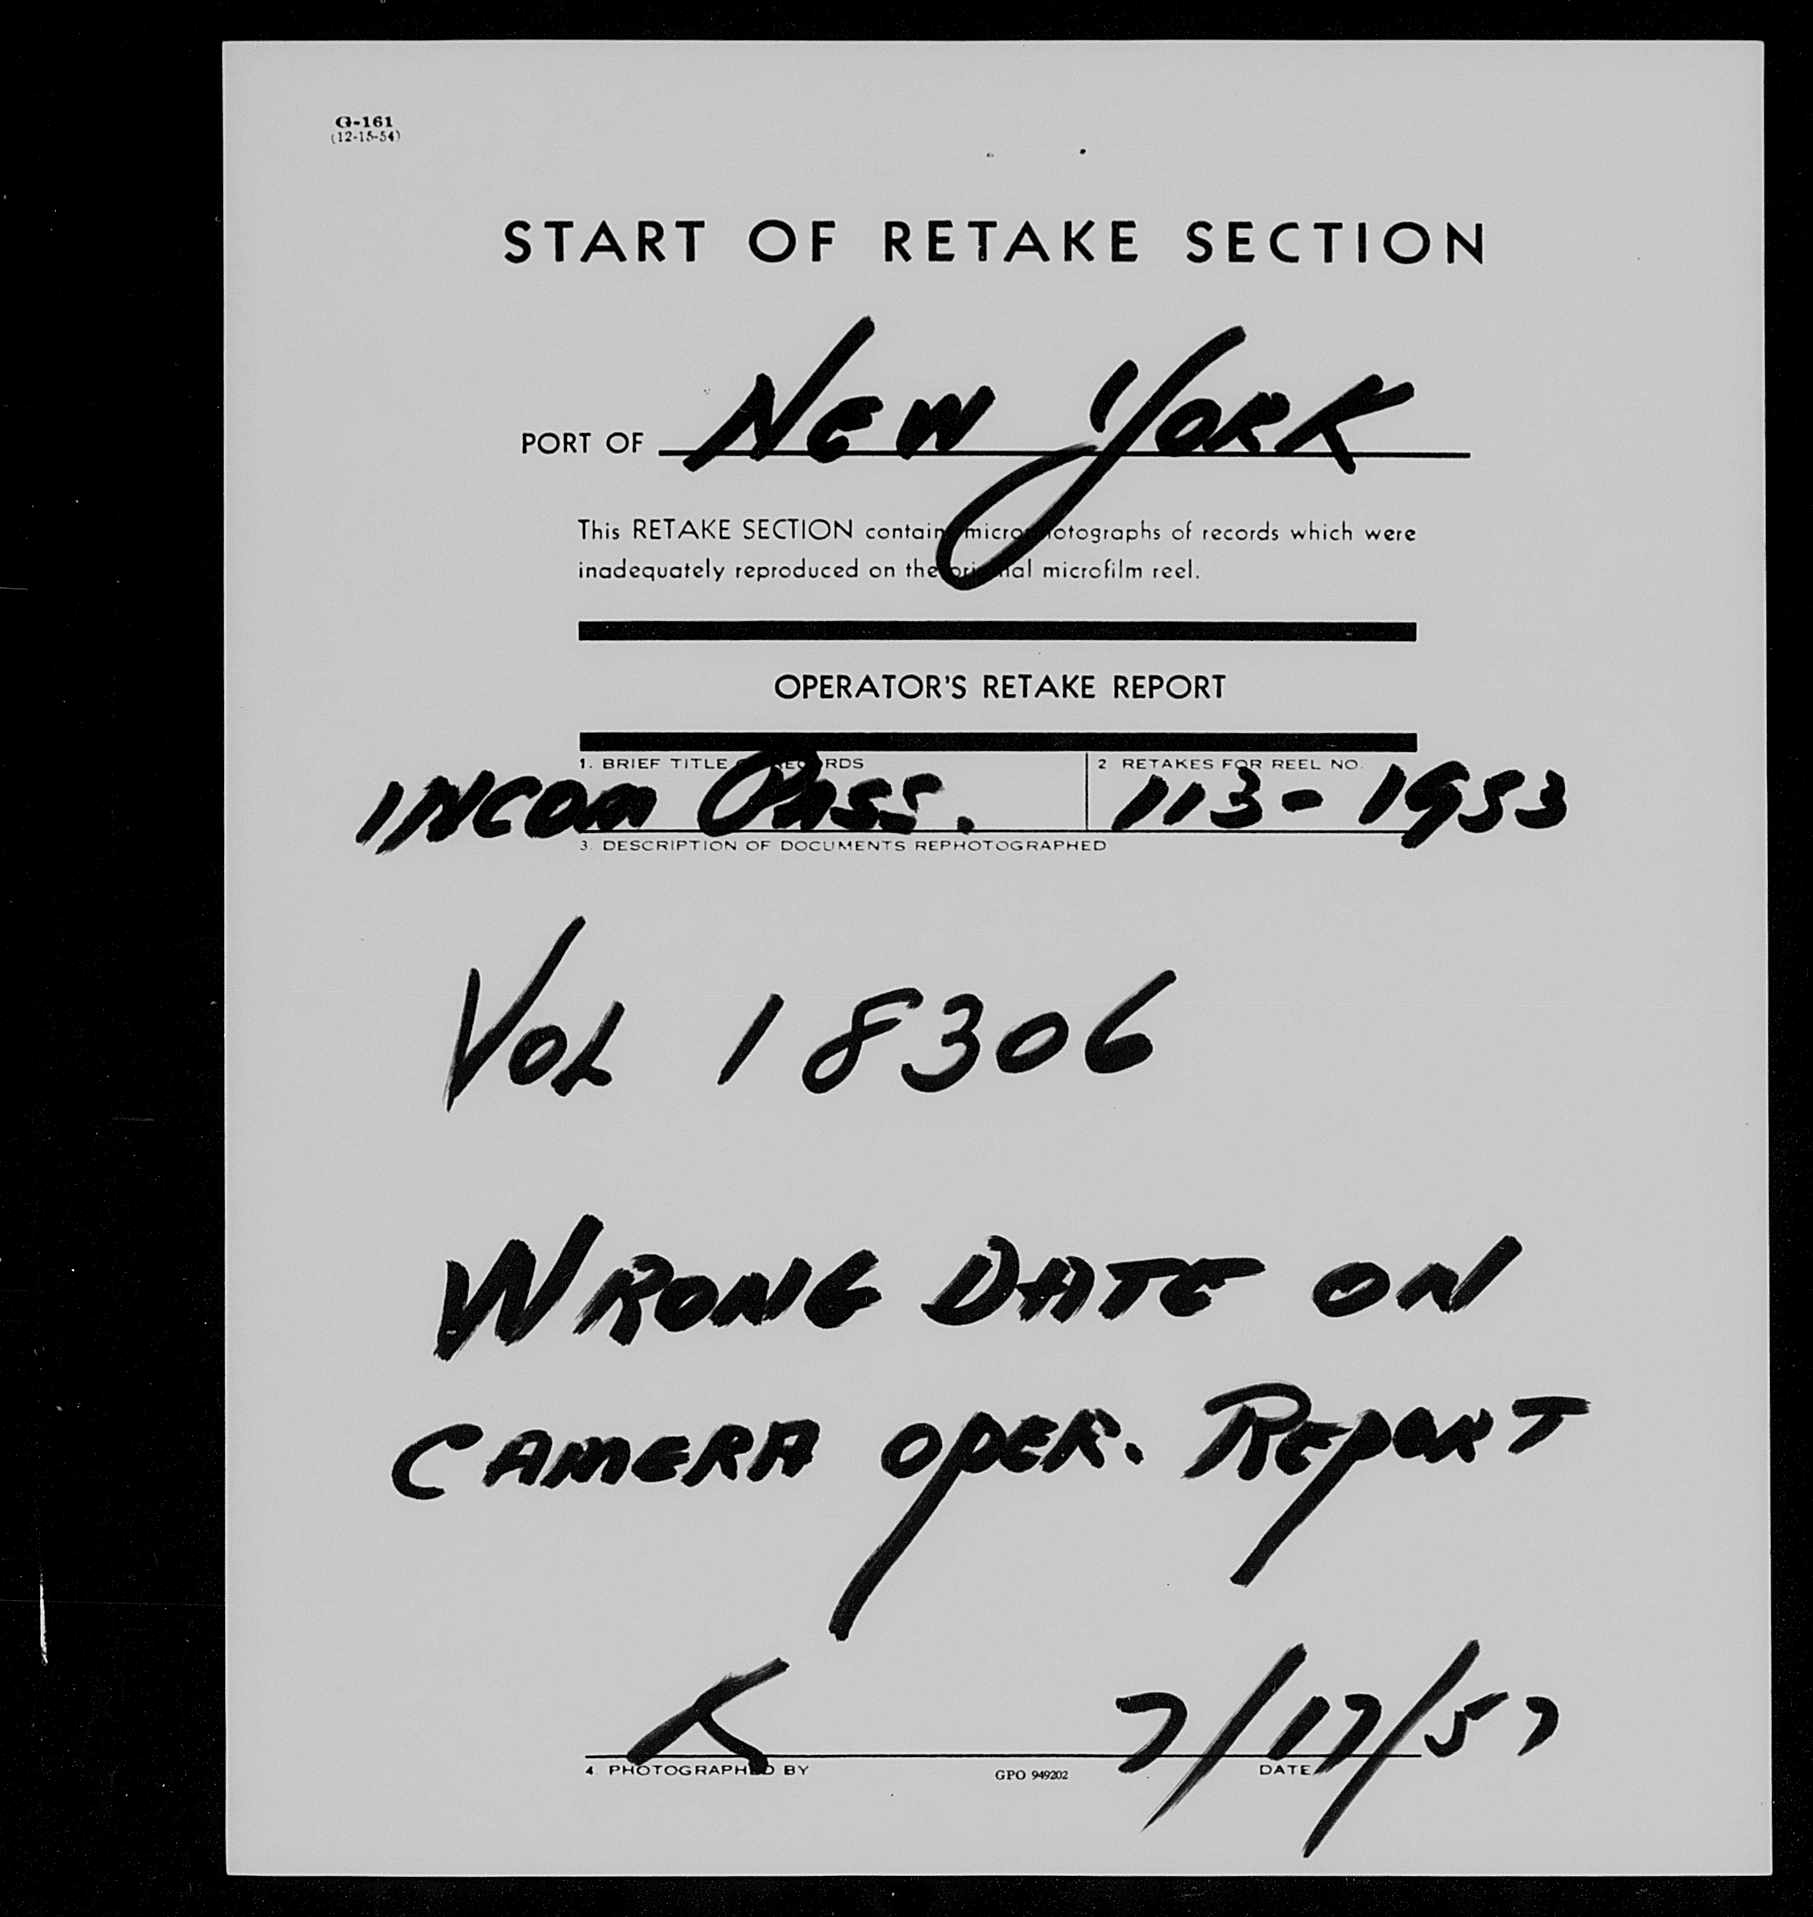 G-161
(12-15-54)
START OF RETAKE SECTION
PORT OF NEW YORK
This RETAKE SECTION contains microphotographs of records which were
inadequately reproduced on the original microfilm reel.
OPERATOR'S RETAKE REPORT
1. BRIEF TITLE OF RECORDS 2 RETAKES FOR REEL NO.
INCOM PASS. 113-1953
3. DESCRIPTION OF DOCUMENTS REPHOTOGRAPHED
VOL 18306
WRONG DATE ON
CAMERA OPER. REPORT
K 7/17/57
4. PHOTOGRAPHED BY GPO 949202 DATE